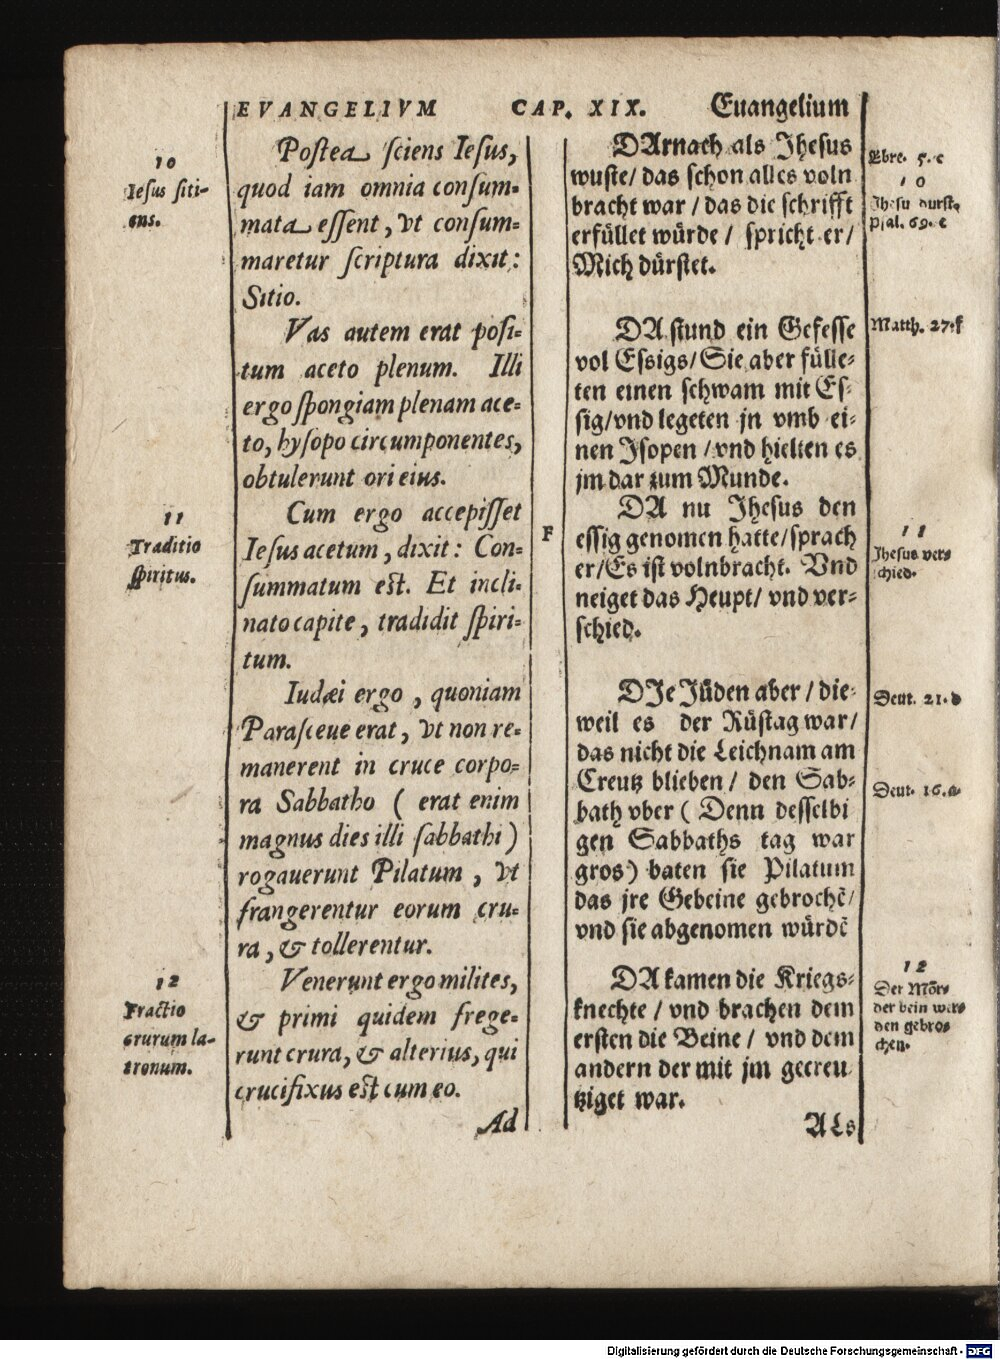 EVANGELIVM CAP. XIX. Euangelium
10
Iesus siti-
ens.
11
Traditio
spiritus.
12
Fractio
crurum la-
tronum.
Postea sciens Iesus,
quod iam omnia consum-
mata essent, vt consum-
maretur scriptura dixit:
Sitio.
Vas autem erat posi-
tum aceto plenum. Illi
ergo spongiam plenam ace-
to, hysopo circumponentes,
obtulerunt ori eius.
Cum ergo accepisset
Iesus acetum, dixit: Con-
summatum est. Et incli-
nato capite, tradidit spiri-
tum.
Iudæi ergo, quoniam
Parasceue erat, vt non re-
manerent in cruce corpo-
ra Sabbatho ( erat enim
magnus dies illi sabbathi )
rogauerunt Pilatum, vt
frangerentur eorum cru-
ra, & tollerentur.
Venerunt ergo milites,
& primi quidem frege-
runt crura, & alterius, qui
crucifixus est cum eo.
Ad
F
DArnach als Jhesus
wuste/ das schon alles voln
bracht war / das die schrifft
erfüllet würde / spricht er/
Mich dürstet.
DA stund ein Gefesse
vol Essigs/ Sie aber fülle-
ten einen schwam mit Es-
sig/vnd legeten jn vmb ei-
nen Jsopen / vnd hielten es
jm dar zum Munde.
DA nu Jhesus den
essig genomen hatte/sprach
er/Es ist volnbracht. Vnd
neiget das Heupt/ vnd ver-
schied.
DJe Jüden aber / die-
weil es der Rüstag war/
das nicht die Leichnam am
Creutz blieben / den Sab-
bath vber ( Denn desselbi
gen Sabbaths tag war
gros) baten sie Pilatum
das jre Gebeine gebrochē/
vnd sie abgenomen würdē
DA kamen die Kriegs-
knechte / vnd brachen dem
ersten die Beine / vnd dem
andern der mit jm gecreu
tziget war.
ALs
Ebre. 5. c
10
Jhesu durst.
Psal. 69. c
Matth. 27. f
11
Jhesus ver-
schied.
Deut. 21. d
Deut. 16. a
12
Der Mör-
der bein wer-
den gebro-
chen.
Digitalisierung gefördert durch die Deutsche Forschungsgemeinschaft - DFG